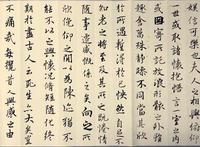 娱信可樂也夫人之相與俯仰
一世或取諸懷抱悟言一室之内
或因寄所託放浪形骸之外雖
趣舍萬殊靜躁不同當其欣
於所遇暫得於己快然自足不
知老之將至及其所之既惓情
隨事遷感慨係之矣向之所
欣俛仰之間以為陳迹猶不
能不以之興懷況脩短隨化終
期於盡古人云死生亦大矣豈
不痛哉每攬昔人興感之由